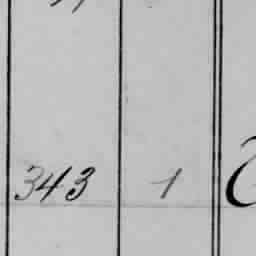 343 1